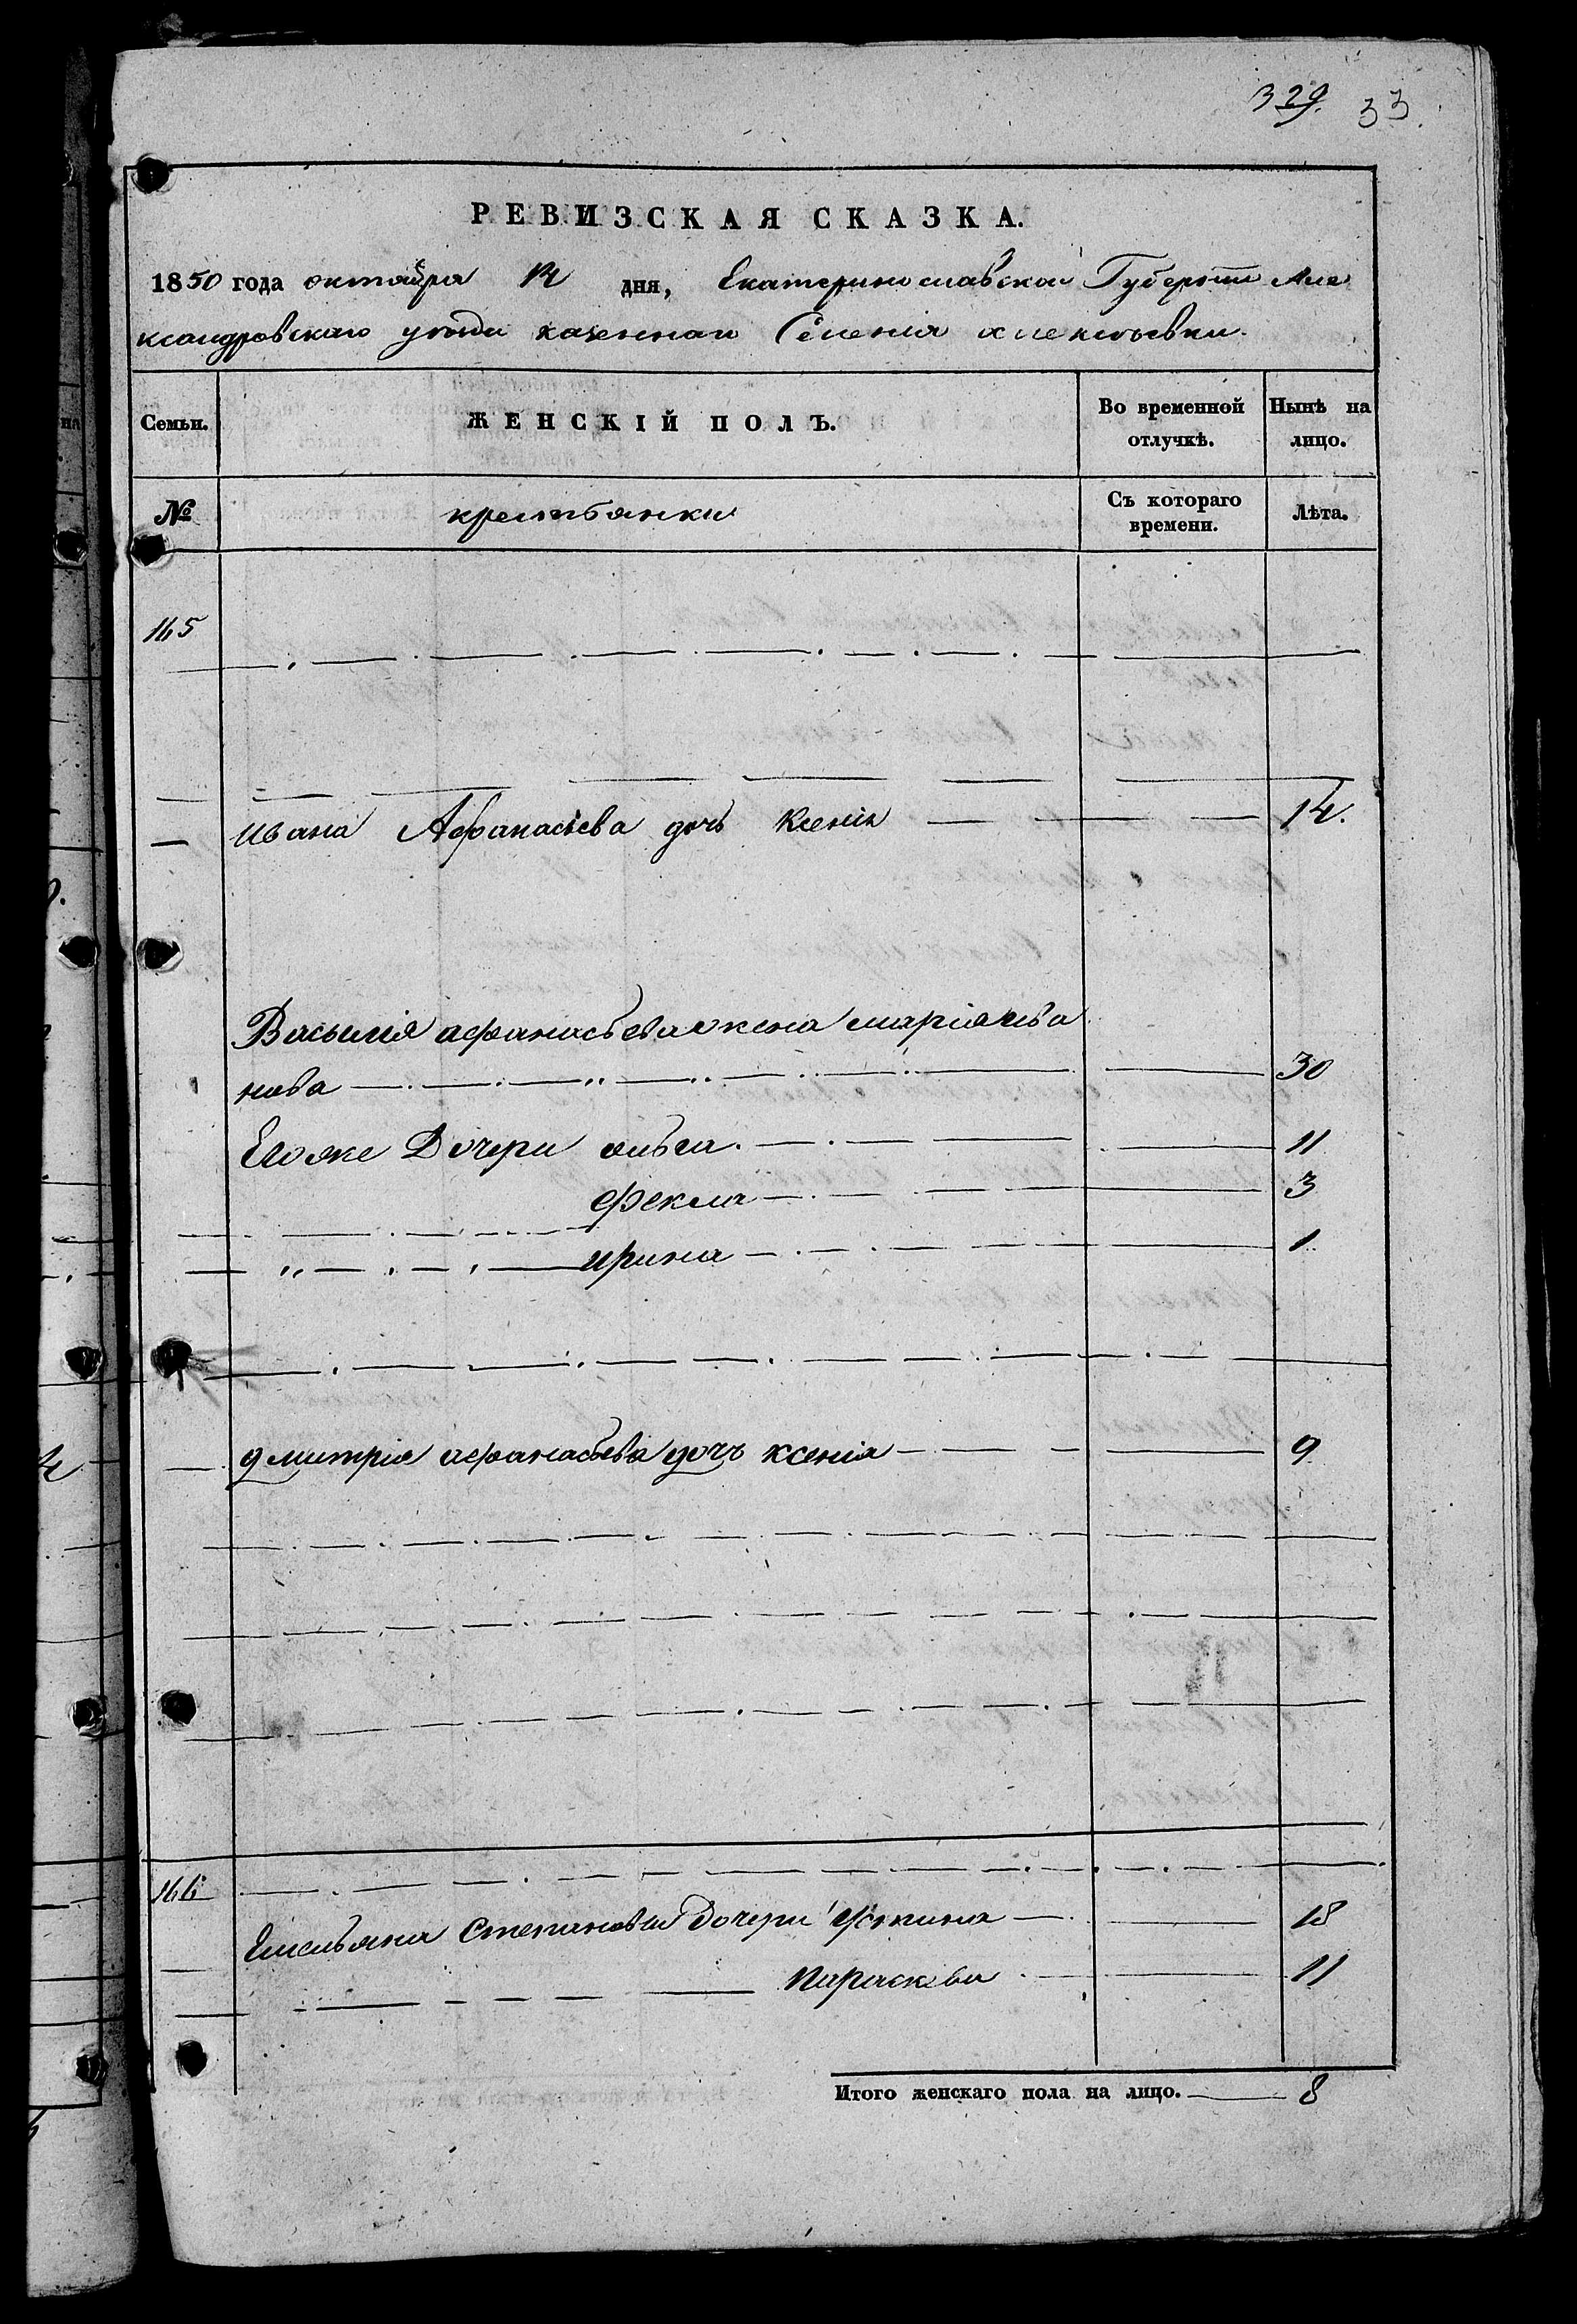 329. 33.
РЕВИЗСКАЯ СКАЗКА.
1850 года октября 14 дня, Екатеринославской Губерніи Але
ксандровскаго уезда казеннаго Селенія алексѣевки.
Семьи. ЖЕНСКІЙ ПОЛЪ. Во временной отлучкѣ. Нынѣ на лицо.
№ крестьянки Съ котораго времени. Лѣта.
165
Ивана Афанасьева дочь Ксенія 14.
Василія афанасьева жена марія
нова 30
Его же Дочери ольга. 11
фекла 3
ирина 1
дмитрія афанасьева дочь ксенія 9
166
Емельяна Степанова Дочери 18
параскева 11
Итого женскаго пола на лицо. 8